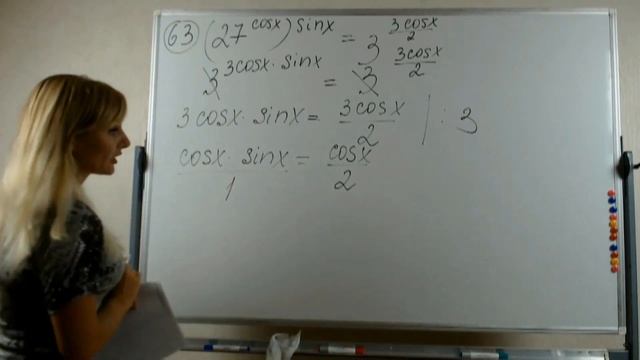 63 (27^cosx)^sinx = 3^(3cosx/2)
3^(3cosx · sinx) = 3^(3cosx/2)
3cosx · sinx = 3cosx/2 | : 3
cosx · sinx/1 = cosx/2